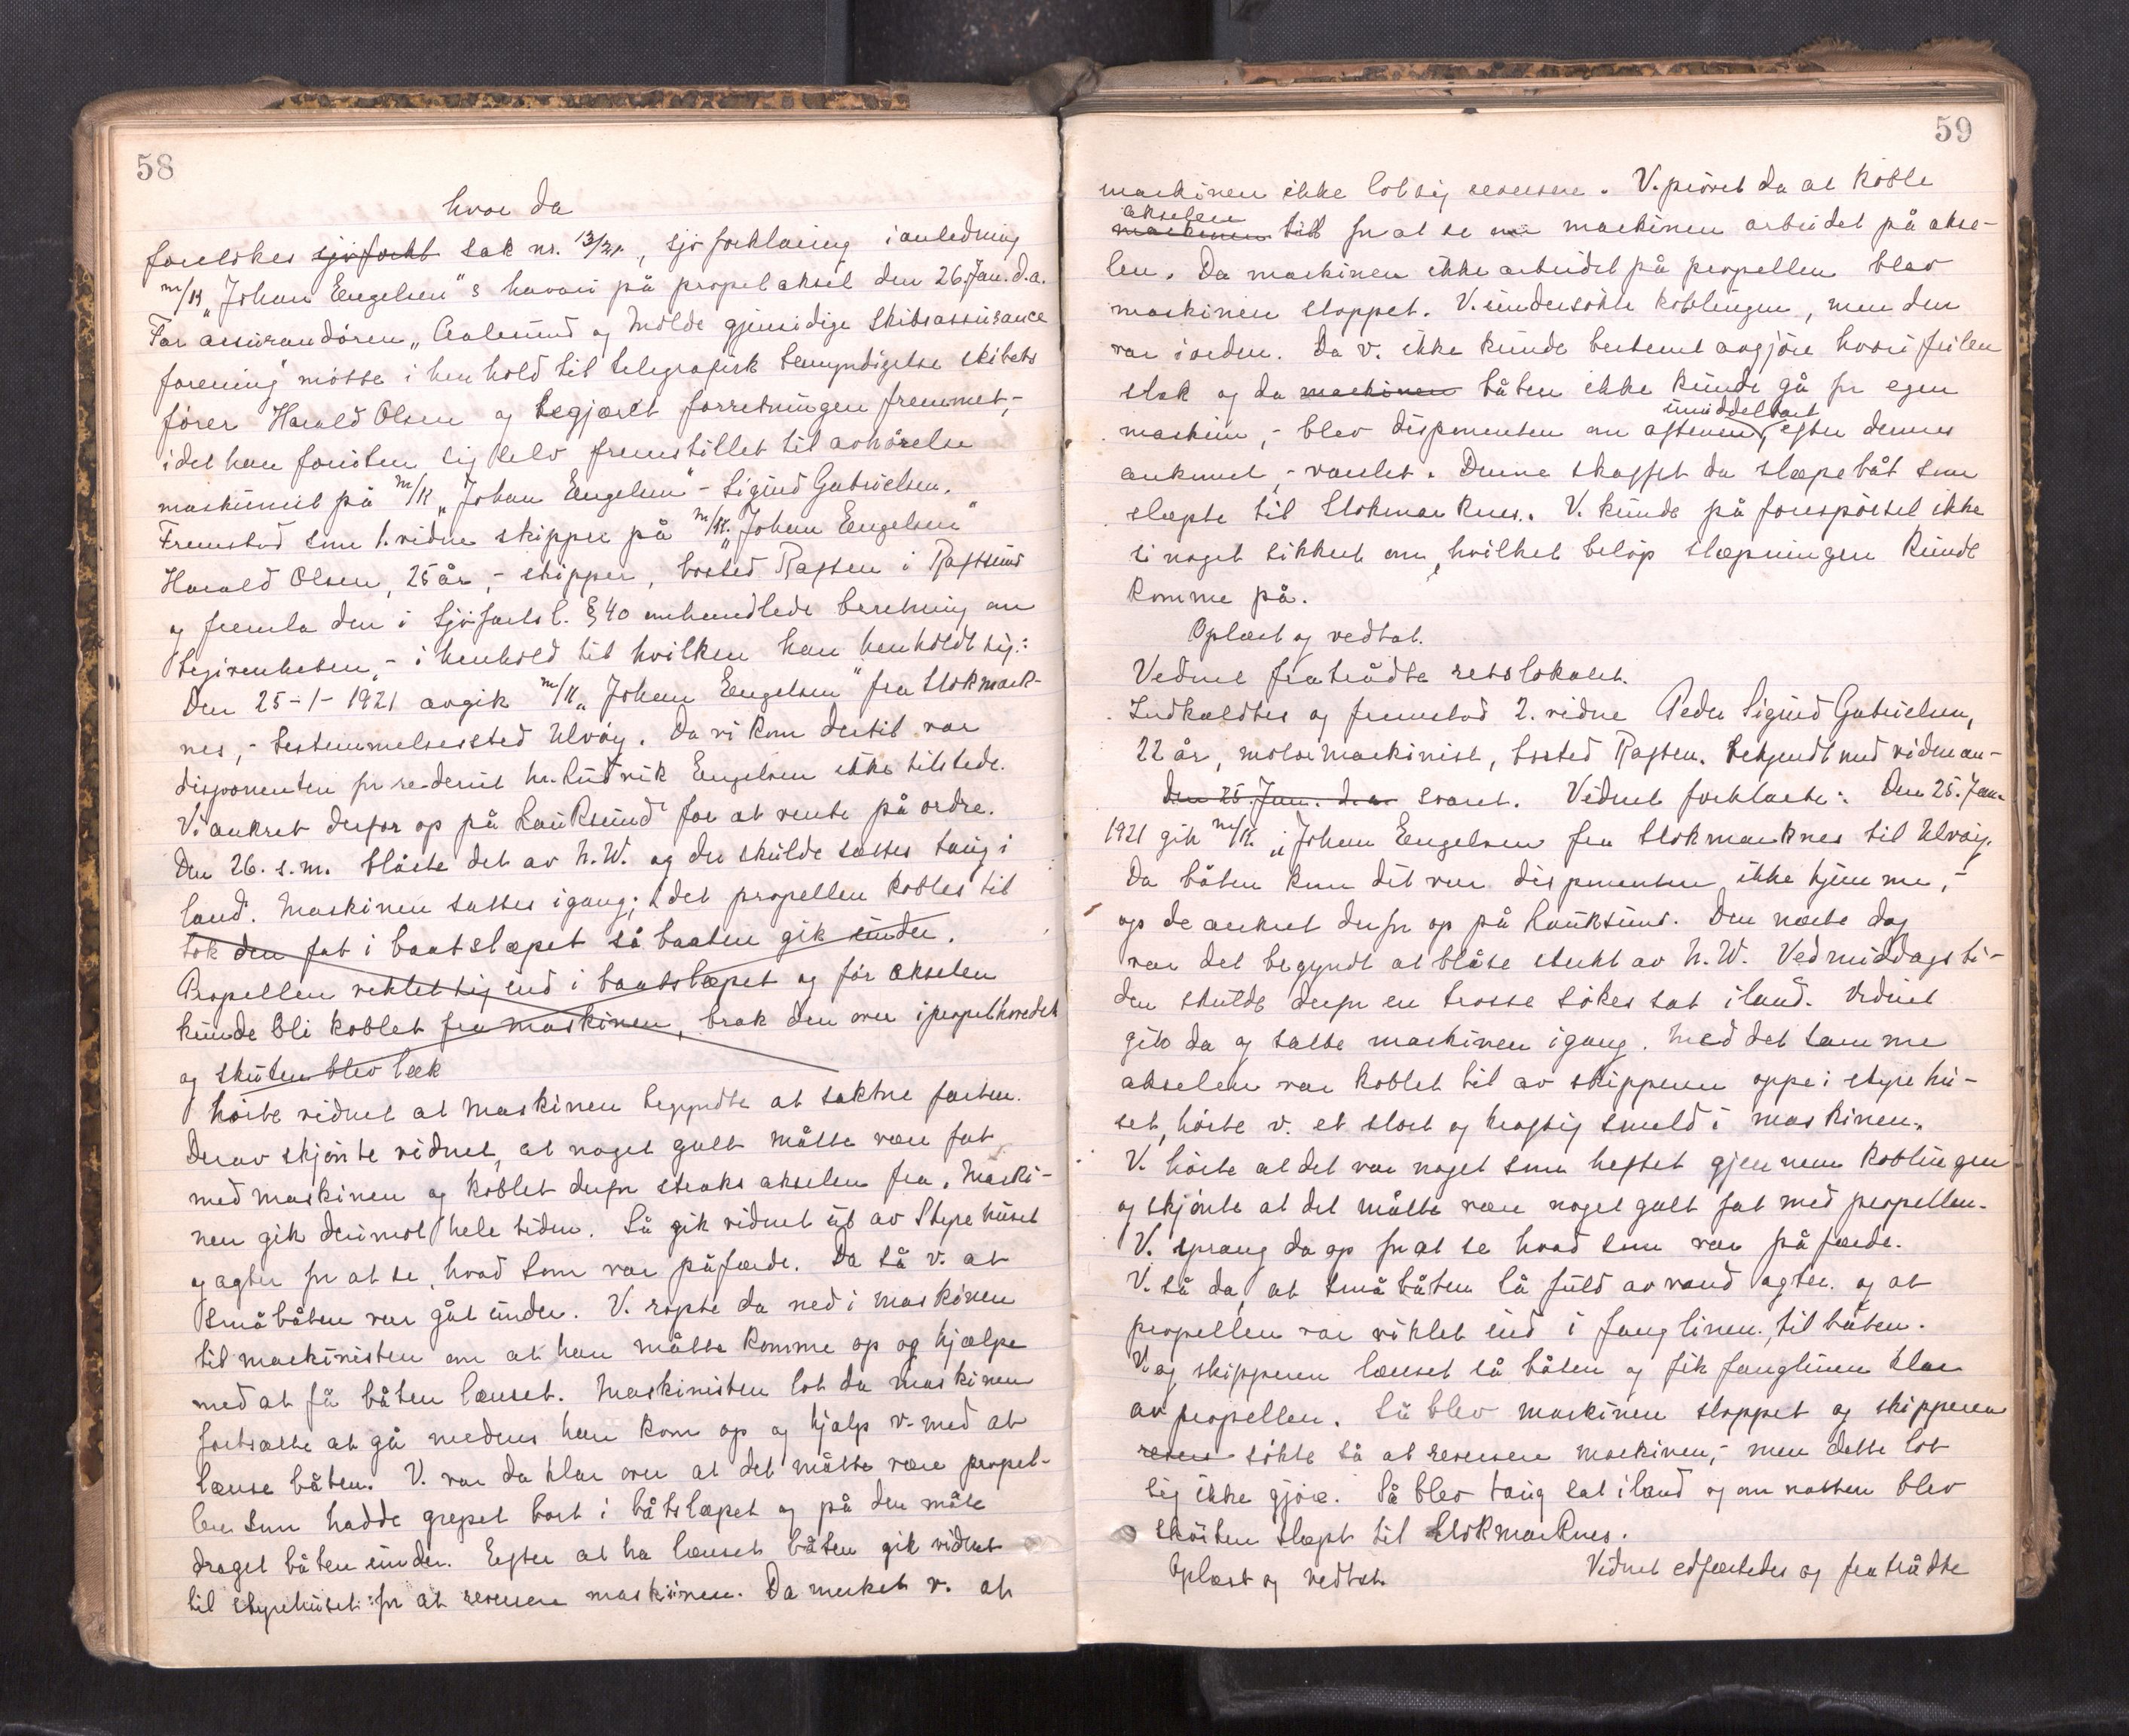 58
hvor da
foretokes sjøforkl sak nr. 13/21, sjøforklaring i anledning
m/K „Johan Engelsen"s havari på propelaksel den 26. Jan. d.a.
For assurandøren „Aalesund og Molde gjensidige Skibsassurance
forening" møtte i henhold til telegrafisk bemyndigelse skibets
fører Harald Olsen og begjæret forretningen fremmet,-
idet han foruten sig selv fremstillet til avhørelse
maskinist på m/K „Johan Engelsen" - Sigurd Gabrielsen.
Fremstod som 1. vidne skipper på m/K. „Johan Engelsen"
Harald Olsen, 25 år, - skipper, bosted Raften i Raftsund
og fremla den i Sjøfartsl. § 40 omhandlede beretning om
begivenheten, - i henhold til hvilken han henholdt sig:
Den 25-1-1921 avgik m/K „Johan Engelsen" fra Stokmark-
nes, - bestemmelsessted Ulvøy. Da vi kom dertil var
disponenten for rederiet hr. Ludvik Engelsen ikke tilstede.
Vi ankret derfor op på Hauksund for at vente på ordre.
Den 26. s.m. blåste det av N.W. og der skulde sættes taug i
land. Maskinen sattes igang; idet propellen kobles til
tok den fat i baatslæpet så baaten gik under.
Propellen viklet sig ind i baatslæpet og før akselen
kunde bli koblet fra maskinen, brak den over i propelhovedet
og skuten blev læk
hørte vidnet at maskinen begyndte at saktne farten.
Derav skjønte vidnet, at noget galt måtte være fat
med maskinen og koblet derfor straks akselen fra. Maski-
nen gik derimot hele tiden. Så gik vidnet ut av Styrehuset
og agter for at se, hvad som var påfærde. Da så v. at
småbåten var gåt under. V. ropte da ned i maskinen
til maskinisten om at han måtte komme op og hjælpe
med at få båten lænset. Maskinisten lot da maskinen
fortsætte at gå medens han kom op og hjalp v. med at
lænse båten. V. var da klar over at det måtte være propel-
len som hadde grepet bort i båtslæpet og på den måte
draget båten under. Efter at ha lænset båten gik vidnet
til styrehuset for at reversere maskinen. Da merket v. at
59
maskinen ikke lot sig reversere. V. prøvet da at koble
akselen
maskinen till for at se om maskinen arbeidet på akse-
len. Da maskinen ikke arbeidet på propellen blev
maskinen stoppet. V. undersøkte koblingen, men den
var i orden. Da v. ikke kunde bestemt avgjøre hvori feilen
stak og da maskinen båten ikke kunde gå for egen
umiddelbart
maskin, - blev disponenten om aftenen, efter dennes
ankomst, - varslet. Denne skaffet da slæpebåt som
slæpte til Stokmarknes. V. kunde på forespørsel ikke
si noget sikkert om, hvilket beløp slæpningen kunde
komme på.
Oplæst og vedtat.
Vidnet fratrådte retslokalet.
Indkaldtes og fremstod 2. vidne Peder Sigurd Gabrielsen,
22 år, motormaskinist, bosted Raften. Bekjendt med vidnean-
den 25. Jan. d.a. svaret. Vidnet forklarte: Den 25. Jan.
1921 gik m/K. „Johan Engelsen fra Stokmarknes til Ulvøy.
Da båten kom dit var disponenten ikke hjemme, -
og de ankret derfor op på Hauksund. Den næste dag
var det begyndt at blåse sterkt av N.W. Ved middagsti-
den skulde derfor en trosse søkes sat iland. Vidnet
gik da og satte maskinen igang. Med det samme
akselen var koblet til av skipperen oppe i styrehu-
set, hørte v. et stort og kraftig smeld i maskinen.
V. hørte at det var noget som heftet gjennem koblingen
og skjønte at det måtte være noget galt fat med propellen.
V. sprang da op for at se hvad som var på færde.
V. så da, at småbåten lå fuld av vand agter og at
propellen var viklet ind i fanglinen til båten.
V. og skipperen lænset så båten og fik fanglinen klar
av propellen. Så blev maskinen stoppet og skipperen
revers søkte så at reversere maskinen, - men dette lot
sig ikke gjøre. Så blev taug sat iland og om natten blev
skøiten slæpt til Stokmarknes.
Oplæst og vedtat. Vidnet edfæstedes og fratrådte